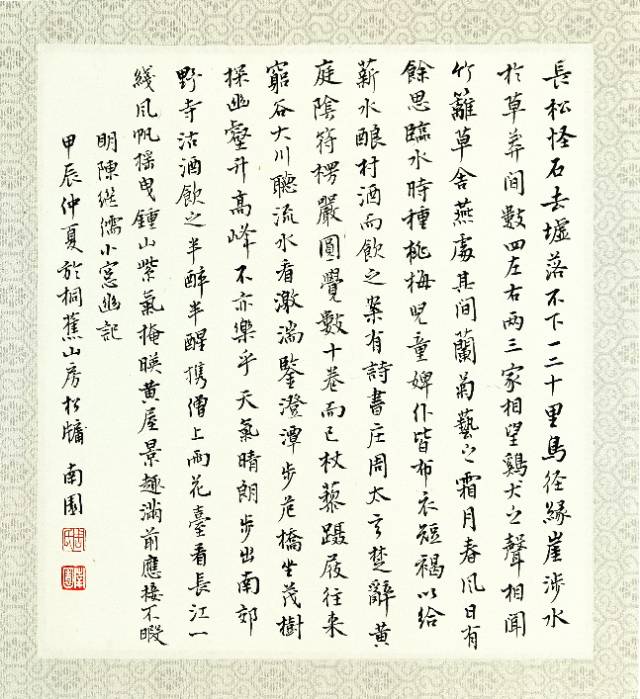 長松怪石去墟落不下一二十里鳥徑緣崖涉水
於草莽間數四左右兩三家相望鷄犬之聲相聞
竹籬草舍燕處其間蘭菊藝之霜月春風日有
餘思臨水時種桃梅兒童婢仆皆布衣短褐以給
薪水釀村酒而飲之案有詩書庄周太玄楚辭黃
庭陰符楞嚴圓覺數十卷而已杖藜躡屐往來
窮谷大川聽流水看激湍鑒澄潭步危橋坐茂樹
探幽壑升高峰不亦樂乎天氣晴朗步出南郊
野寺沽酒飲之半醉半醒携僧上雨花臺看長江一
綫風帆搖曳鍾山紫氣掩暎黃屋景趣滿前應接不暇
明陳继儒小窗幽記
甲辰仲夏於桐蕉山房松牖 南園